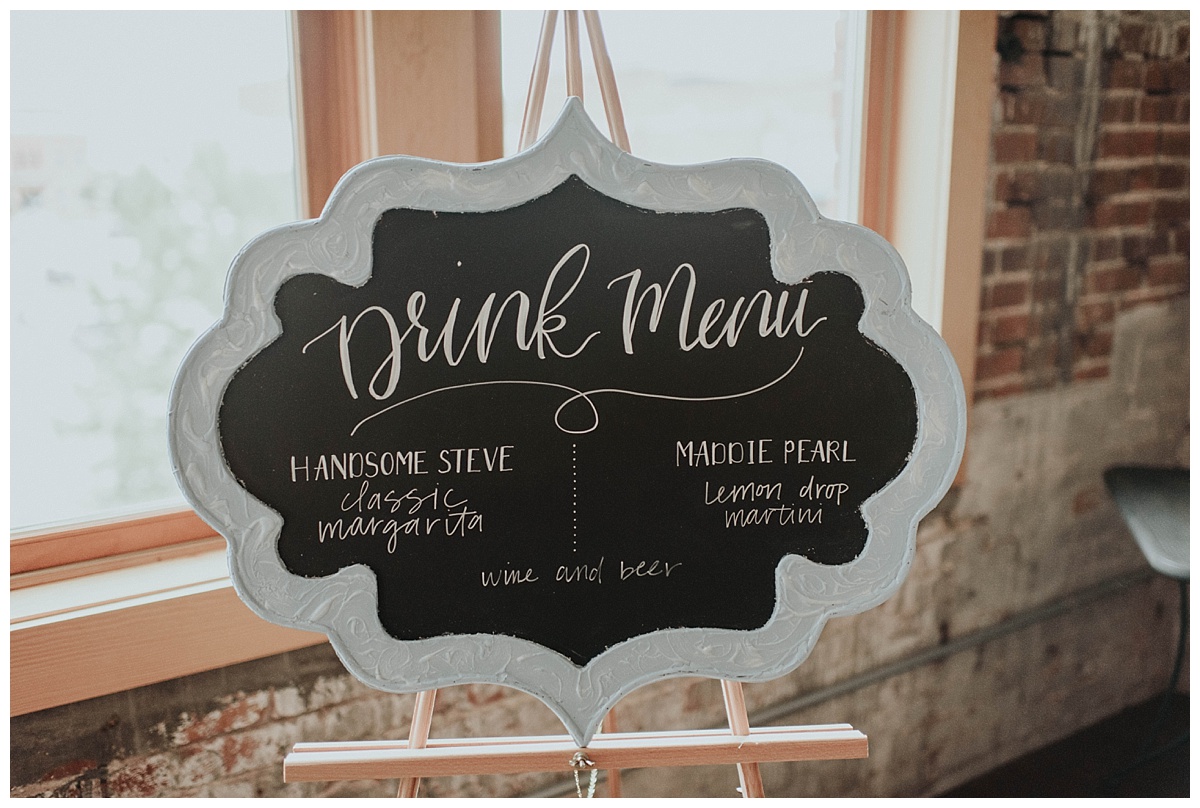 Drink Menu
HANDSOME STEVE
classic
margarita
MADDIE PEARL
Lemon drop
martini
wine and beer